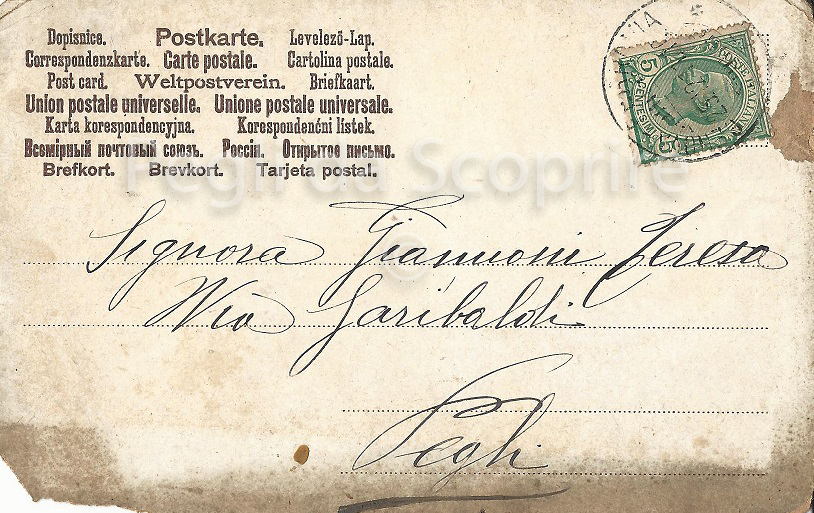 Dopisnice. Postkarte. Levelező-Lap.
Correspondenzkarte. Carte postale. Cartolina postale.
Post card. Weltpostverein. Briefkaart.
Union postale universelle. Unione postale universale.
Karta korespondencyjna. Korespondenčni listek.
Всемірный почтовый союзъ. Россія. Открытое письмо.
Brefkort. Brevkort. Tarjeta postal.
POSTE ITALIANE
5
Pegli da Scoprire
Signora Giannoni Teresa
Via Garibaldi
Pegli